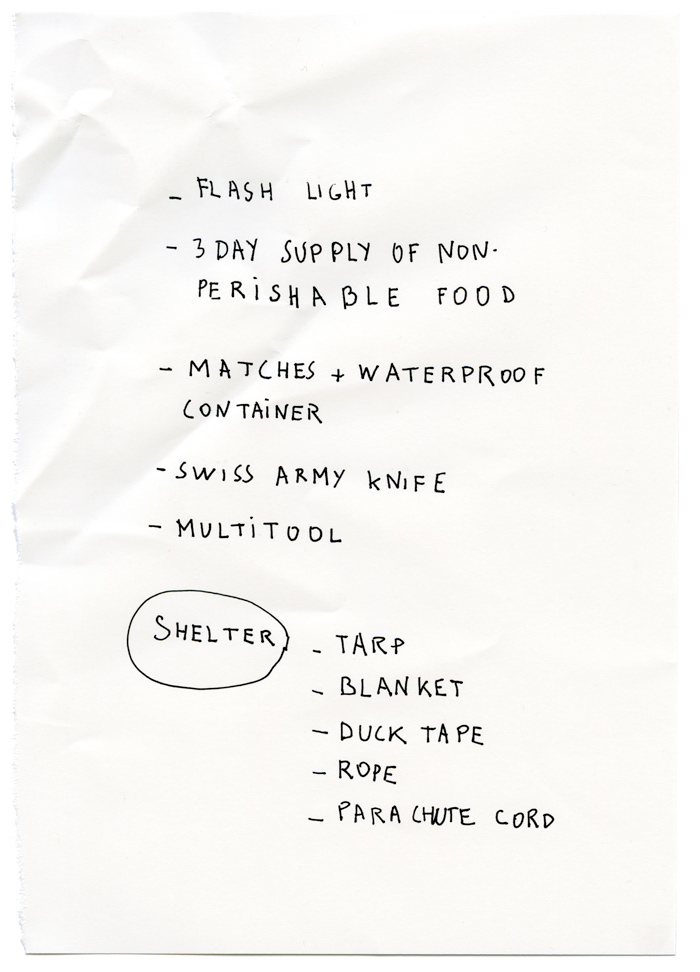 - FLASH LIGHT
- 3 DAY SUPPLY OF NON-
PERISHABLE FOOD
- MATCHES + WATERPROOF
CONTAINER
- SWISS ARMY KNIFE
- MULTITOOL
SHELTER
- TARP
- BLANKET
- DUCK TAPE
- ROPE
- PARACHUTE CORD